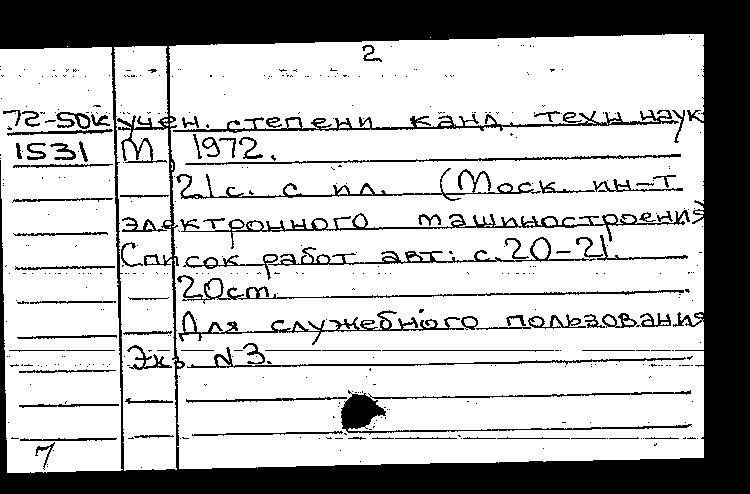 2
72-50к учен. степени канд. техн наук
1531 М, 1972.
21с. с ил. (Моск. ин-т
электронного машиностроения)
Список работ авт: с.20-21.
20cm.
Для служебного пользования
Экз. N3.
7